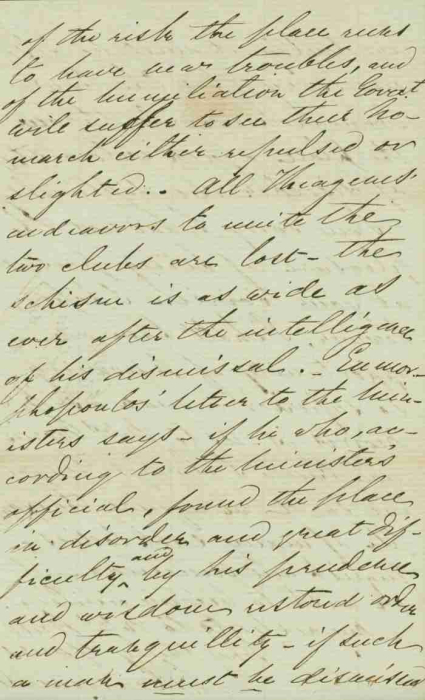 of the risk the place runs
to have new troubles, and
of the humiliation the Govert
will suffer to see their Mo-
march either repulsed or
slighted.. All Theagenis'
endeavors to unite the
two clubs are lost - the
schism is as wide as
ever after the intelligence
of his dismissal. - Eumor-
phopoulos' letter to the min-
isters says - if he who, ac-
cording to the minister's
official, found the place
in disorder and great dif-
ficulty, and by his prudence
and wisdom restored order
and tranquillity - if such
a man must be dismissed